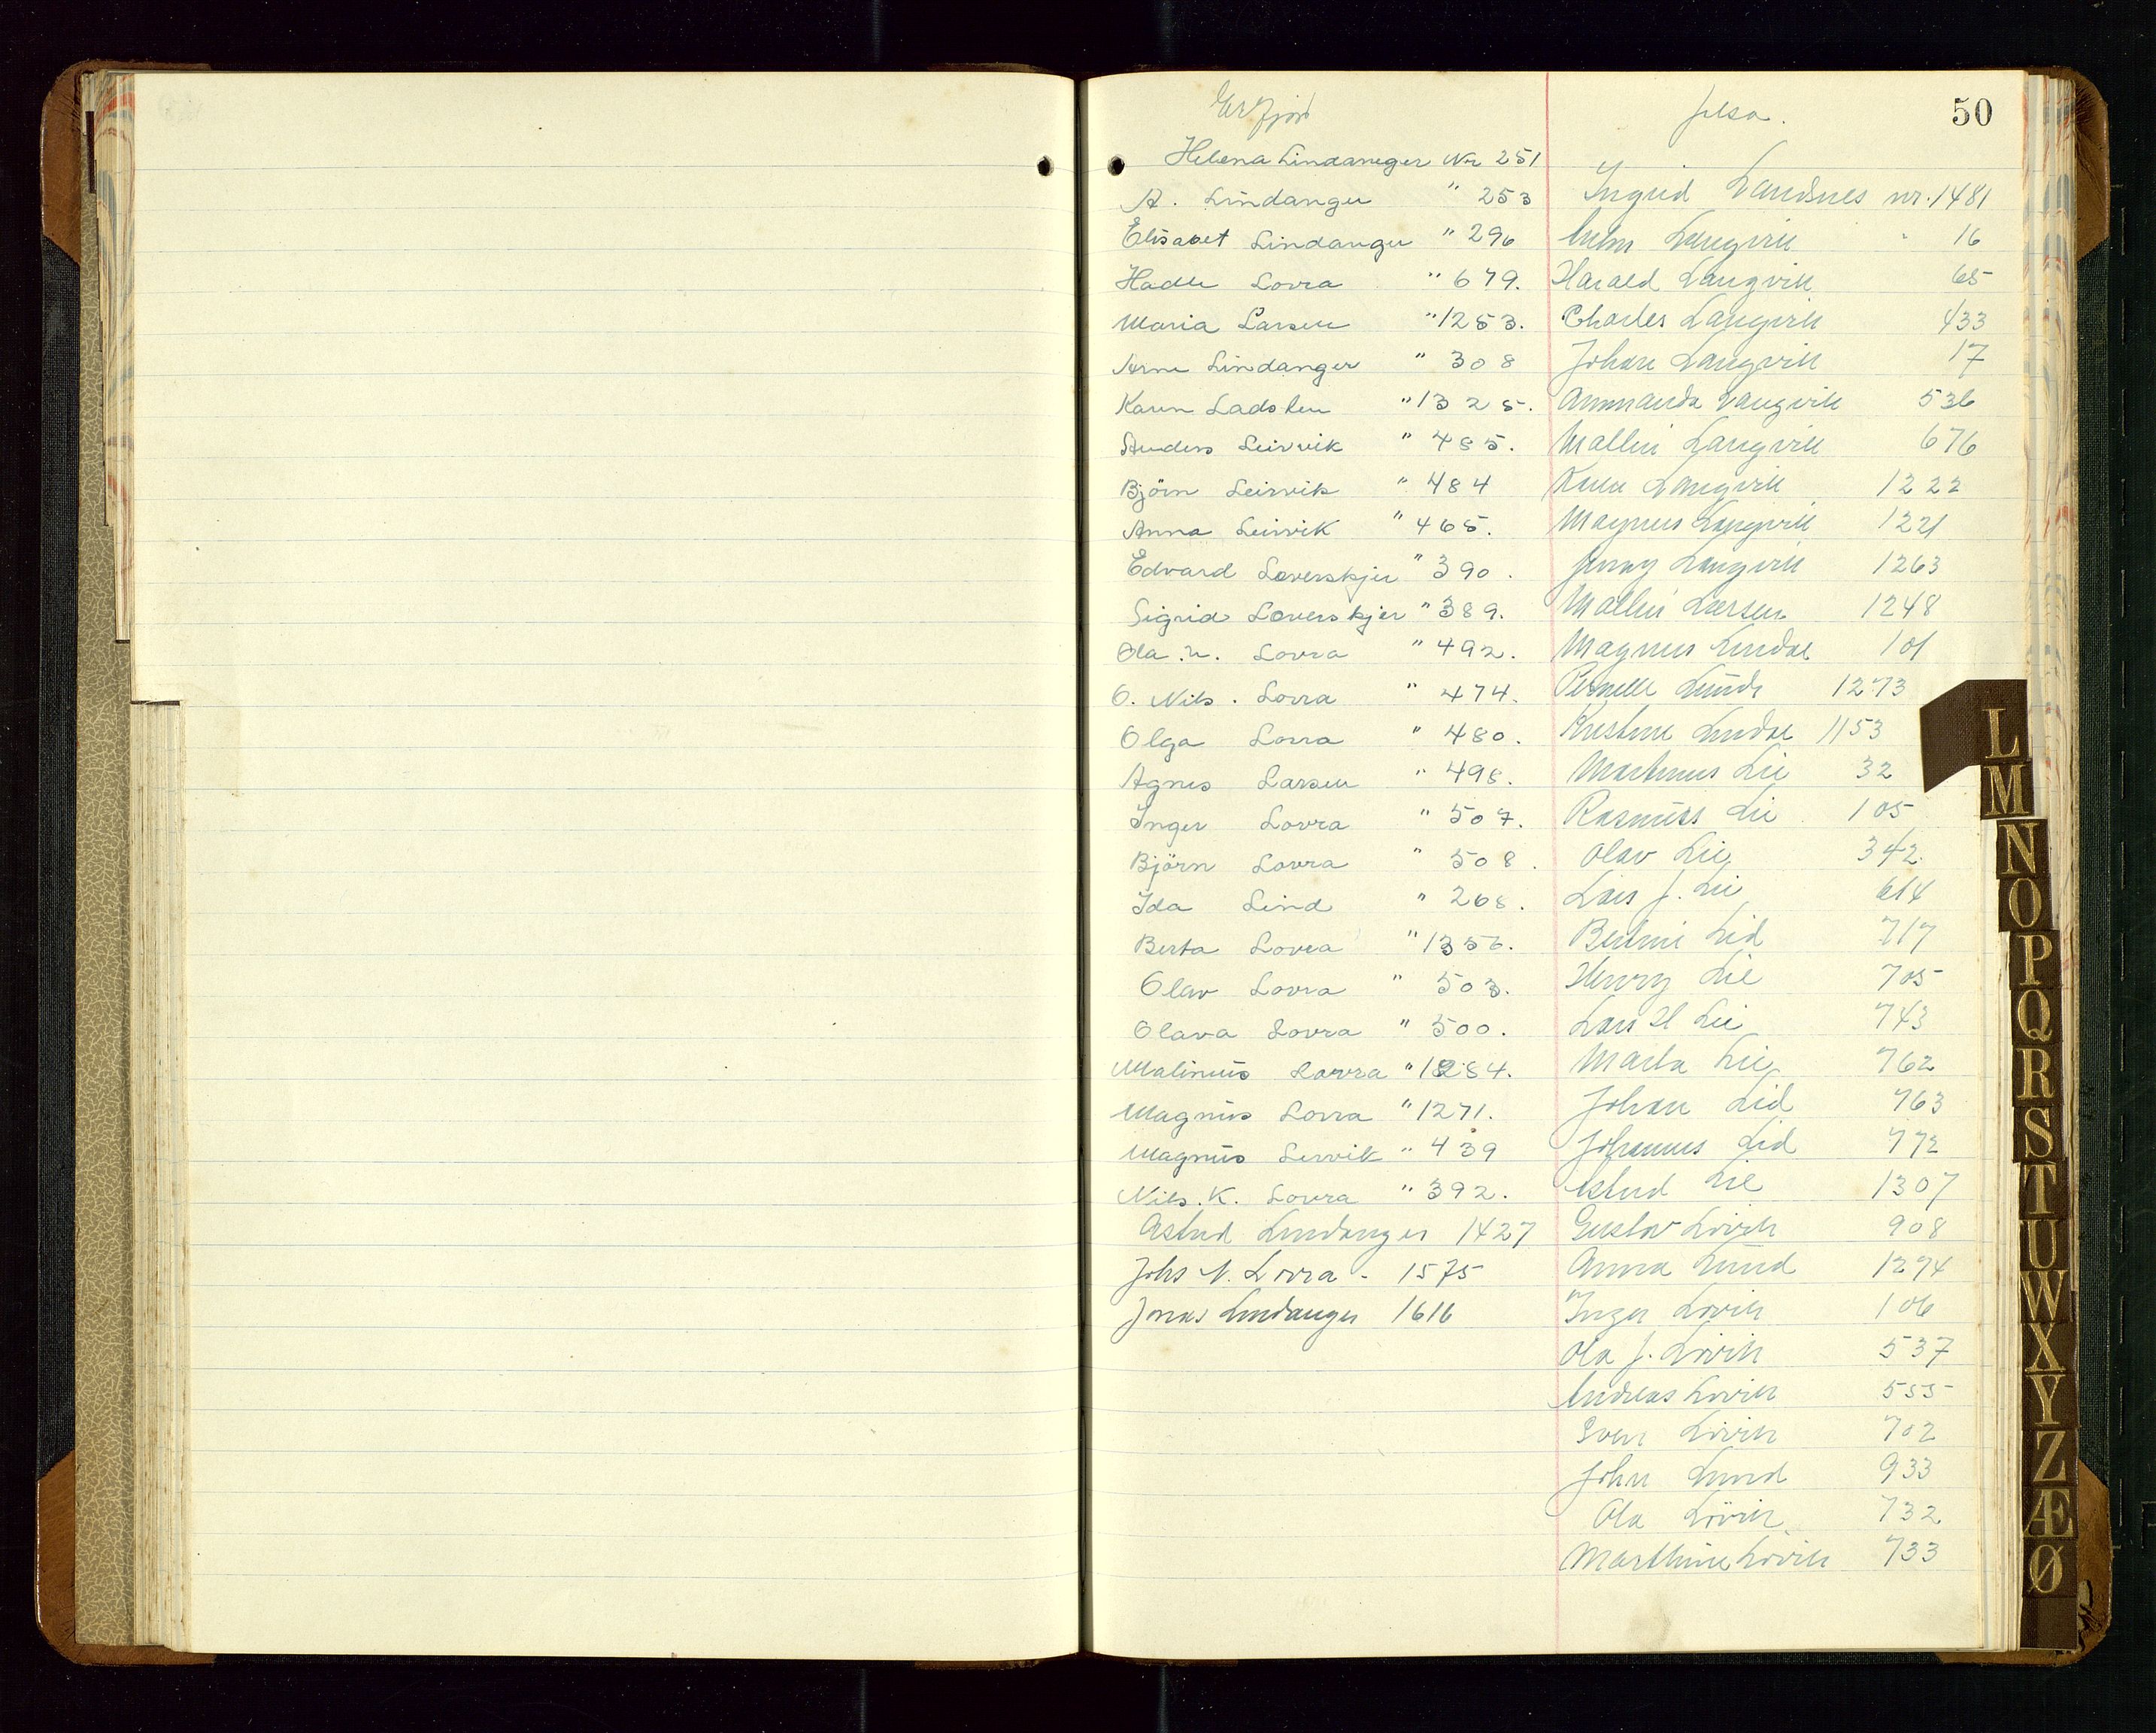 50
Erfjord
Helena Lindaneger Nr 251
A. Lindanger " 253
Elisabet Lindanger " 296
Hadle Lovra " 679.
Maria Larsen " 1253.
Arne Lindanger " 308
Karen Ladsten " 1325.
Anders Leirvik " 485.
Björn Leirvik " 484
Anna Leirvik " 465.
Edvard Loverskjer " 390.
Sigrid Loverskjer " 389.
Ola. N. Lovra " 492.
O. Nils. Lovra " 474.
Olga Lovra " 480.
Agnes Larsen " 498.
Inger Lovra " 507.
Björn Lovra " 508.
Ida Lind " 268.
Berta Lovra " 1356.
Olav Lovra " 503.
Olava Lovra " 500.
Malinus Lovra " 1284.
Magnus Lovra " 1271.
Magnus Leirvik " 439
Nils. K. Lovra " 392.
Astrid Lindanger 1427
Johs N. Lovra - 1575
Jonas Lindanger 1616
Jelsa.
Ingrid Landsnes nr. 1481
Langvik " 16
Harald Langvik 65
Charles Langvik 433
Johan Langvik 17
Ammanda Langvik 536
Mallin Langvik 676
Karen Langvik 1222
Magnus Langvik 1221
Jenny Langvik 1263
Mallin Larsen 1248
Magnus Lindal 101
Pernelle Lunde 1273
Kristine Lindal 1153
Martinus Lie 32
Rasmus Lie 105
Olav Lie 342.
Lars J. Lie 614
Bertine Lid 717
Henry Lie 705
Lars H Lie 743
Marta Lie 762
Johan Lid 763
Johannes Lid 772
Astrid Lie 1307
Gustav Lövik 908
Anna Lund 1274
Inger Lövik 106
Ola J. Lövik 537
Andreas Lövik 555
Sven Lövik 702
John Lund 933
Ola Lövik 732
Marthine Lövik 733
L
M
N
O
P
Q
R
S
T
U
W
X
Y
Z
Æ
Ø